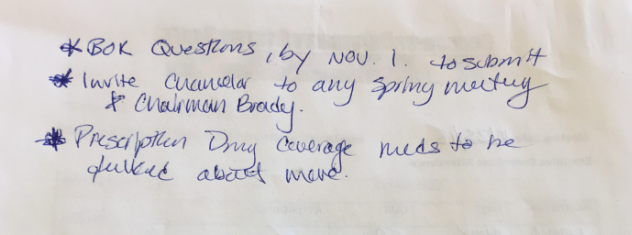 * BOK Questions, by Nov. 1. to submit
* Invite Chancelor to any Spring meeting
& Chairman Brady.
* Prescription Drug Coverage needs to be
talked about more.